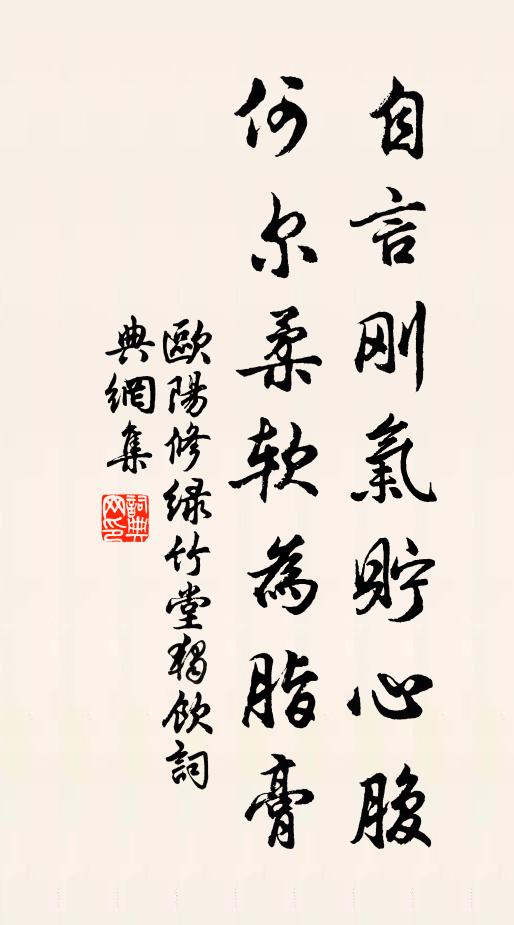 自言刚氣貯心腹
何尔柔软為脂膏
歐陽修緑竹堂獨飲詞
典網集
詞典网印